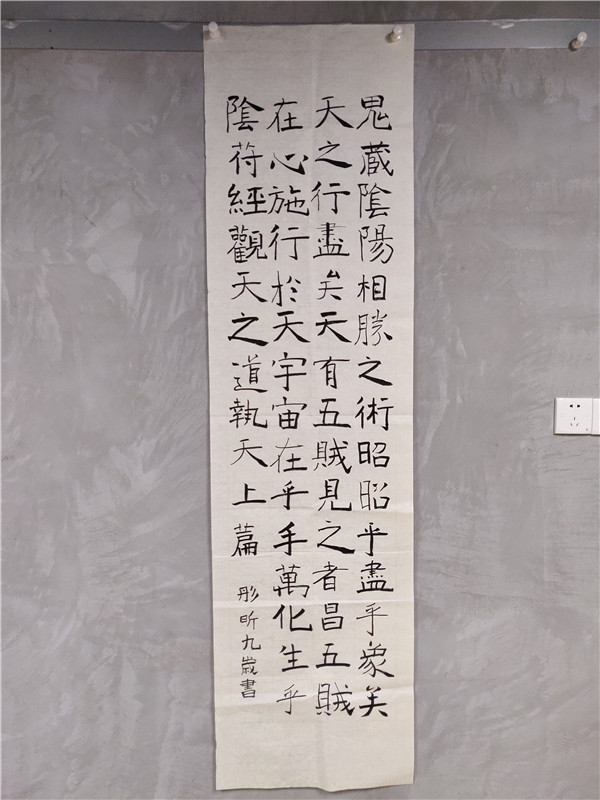 鬼藏陰陽相勝之術昭昭乎盡乎象矣
天之行盡矣天有五賊見之者昌五賊
在心施行於天宇宙在乎手萬化生乎
陰符經觀天之道執天上篇
彤昕九歲書